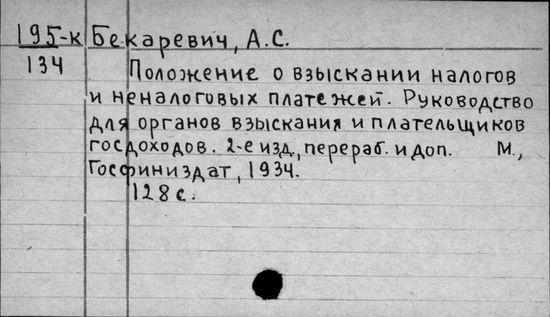 195-к Бекаревич, А.С.
134
Положение о взыскании налогов
и неналоговых платежей. Руководство
для органов взыскания и плательщиков
госдоходов. 2-е изд., перераб. и доп. М.,
Госфиниздат, 1934.
128 с.